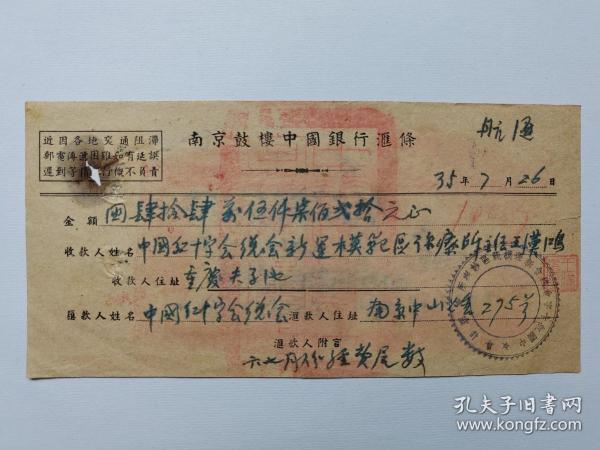 近因各地交通阻滯
郵電傳遞困難如有延誤
遲到等情行概不負責
南京鼓樓中國銀行滙條
航通
35年7月26日
金額 國肆拾肆萬伍仟柒佰貳拾元正
收款人姓名 中國紅十字会總会新運模範區診療所王漢鳴
收款人住址 重慶夫子池
匯款人姓名 中國紅十字会總会 滙款人住址 南京中山路275号
滙款人附言
六七月份經費尾數
孔夫子旧书网
www.kongfz.com